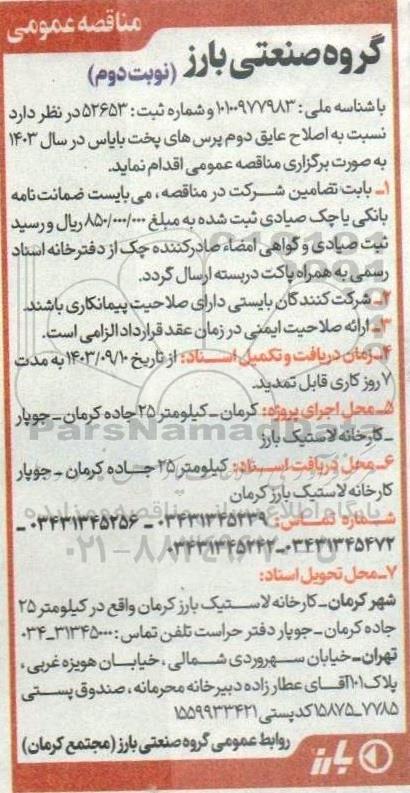 مناقصه عمومی
گروه صنعتی بارز (نوبت دوم)
با شناسه ملی: ۱۰۱۰۰۹۷۷۹۸۳ و شماره ثبت: ۵۲۶۵۳ در نظر دارد
نسبت به اصلاح عایق دوم پرس های پخت بایاس در سال ۱۴۰۳
به صورت برگزاری مناقصه عمومی اقدام نماید.
۱ـ بابت تضامین شرکت در مناقصه، می بایست ضمانت نامه
بانکی یا چک صیادی ثبت شده به مبلغ ۸۵۰/۰۰۰/۰۰۰ ریال و رسید
ثبت صیادی و گواهی امضاء صادرکننده چک از دفترخانه اسناد
رسمی به همراه پاکت دربسته ارسال گردد.
۲ـ شرکت کنندگان بایستی دارای صلاحیت پیمانکاری باشند.
۳ـ ارائه صلاحیت ایمنی در زمان عقد قرارداد الزامی است.
۴ـ زمان دریافت و تکمیل اسناد: از تاریخ ۱۴۰۳/۰۹/۱۰ به مدت
۷ روز کاری قابل تمدید.
۵ـ محل اجرای پروژه: کرمان ـ کیلومتر ۲۵ جاده کرمان ـ جوپار
ـ کارخانه لاستیک بارز
۶ـ محل دریافت اسناد: کیلومتر ۲۵ جاده کرمان ـ جوپار
کارخانه لاستیک بارز کرمان
شماره تماس: ۰۳۴۳۱۳۴۵۲۳۹ ـ ۰۳۴۳۱۳۴۵۲۵۶ ـ
۰۳۴۳۱۳۴۵۴۷۲ـ۰۳۴۳۱۳۴۵۲۴۲
۷ـ محل تحویل اسناد:
شهر کرمان ـ کارخانه لاستیک بارز کرمان واقع در کیلومتر ۲۵
جاده کرمان ـ جوپار دفتر حراست تلفن تماس: ۳۱۳۴۵۰۰۰ـ۰۳۴
تهران ـ خیابان سهروردی شمالی، خیابان هویزه غربی،
پلاک ۱۰۱ آقای عطار زاده دبیرخانه محرمانه، صندوق پستی
۷۷۸۵ـ۱۵۸۷۵ کدپستی ۱۵۵۹۹۳۳۴۲۱
روابط عمومی گروه صنعتی بارز (مجتمع کرمان)
بارز
ParsNamadData